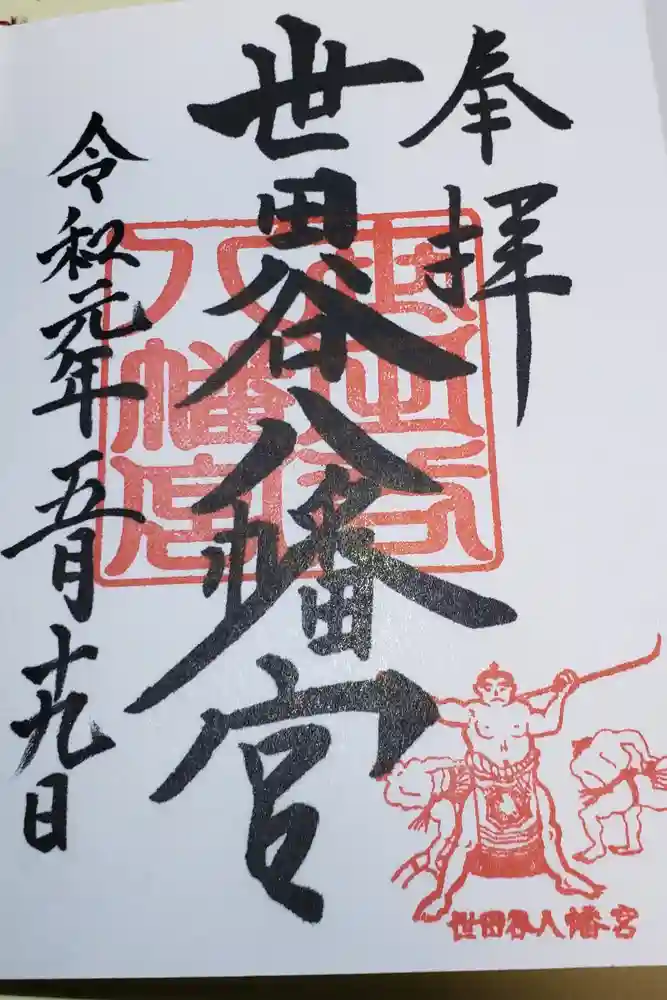 奉拝
世田谷八幡宮
世田谷
八幡宮
令和元年五月十九日
世田谷八幡宮